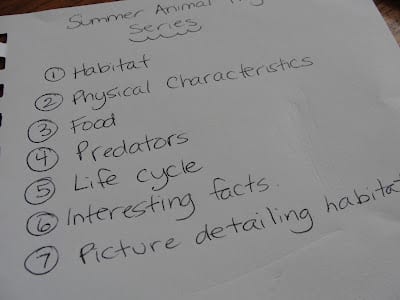 Summer Animal
Series
① Habitat
② Physical Characteristics
③ Food
④ Predators
⑤ Life cycle
⑥ Interesting facts.
⑦ Picture detailing habitat